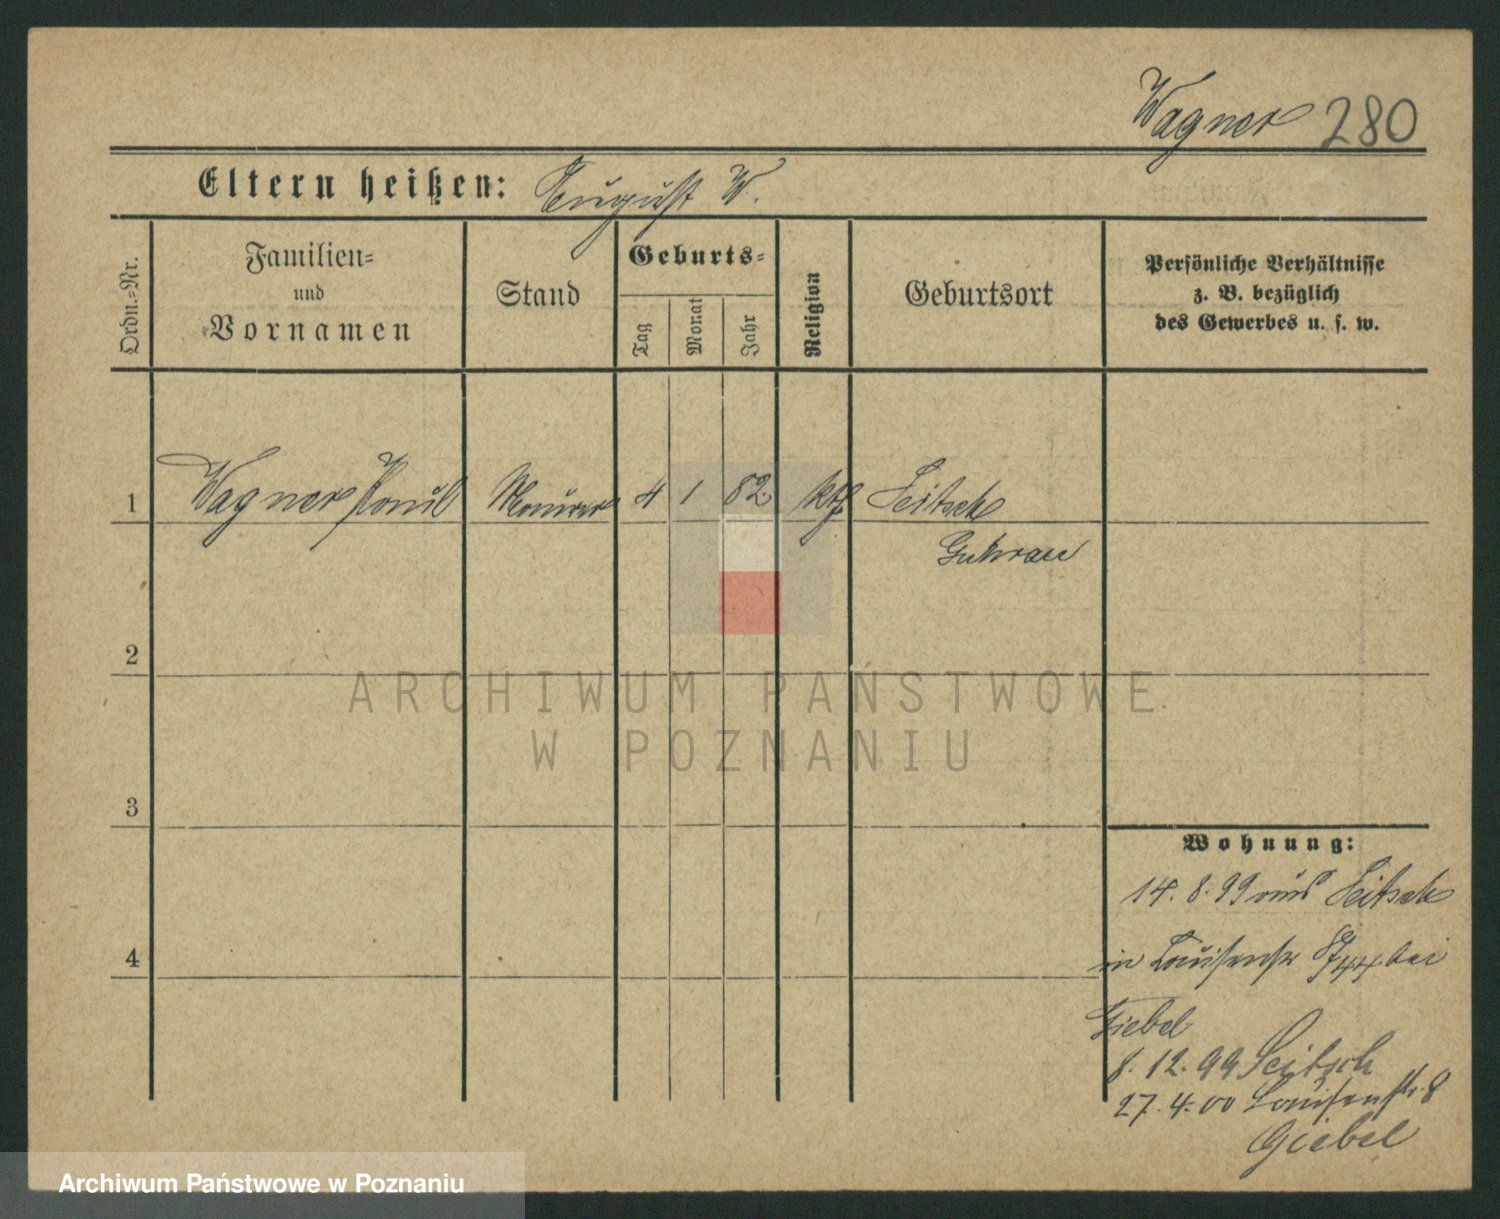 Wagner 280
Eltern heißen: August W.
Ordn.-Nr.
Familien-
und
Vornamen
Stand
Geburts-
Tag
Monat
Jahr
Religion
Geburtsort
Persönliche Verhältnisse
z. B. bezüglich
des Gewerbes u. s. w.
1 Wagner Paul Maurer 4 1 82. kth Seitsch
Guhrau
2
3
4
Wohnung:
14. 8. 99 aus Seitsch
in Louisenstr 8 bei
Giebel
8. 12. 99 Seitsch
27. 4. 00 Louisenstr. 8
Giebel
ARCHIWUM PAŃSTWOWE
W POZNANIU
Archiwum Państwowe w Poznaniu